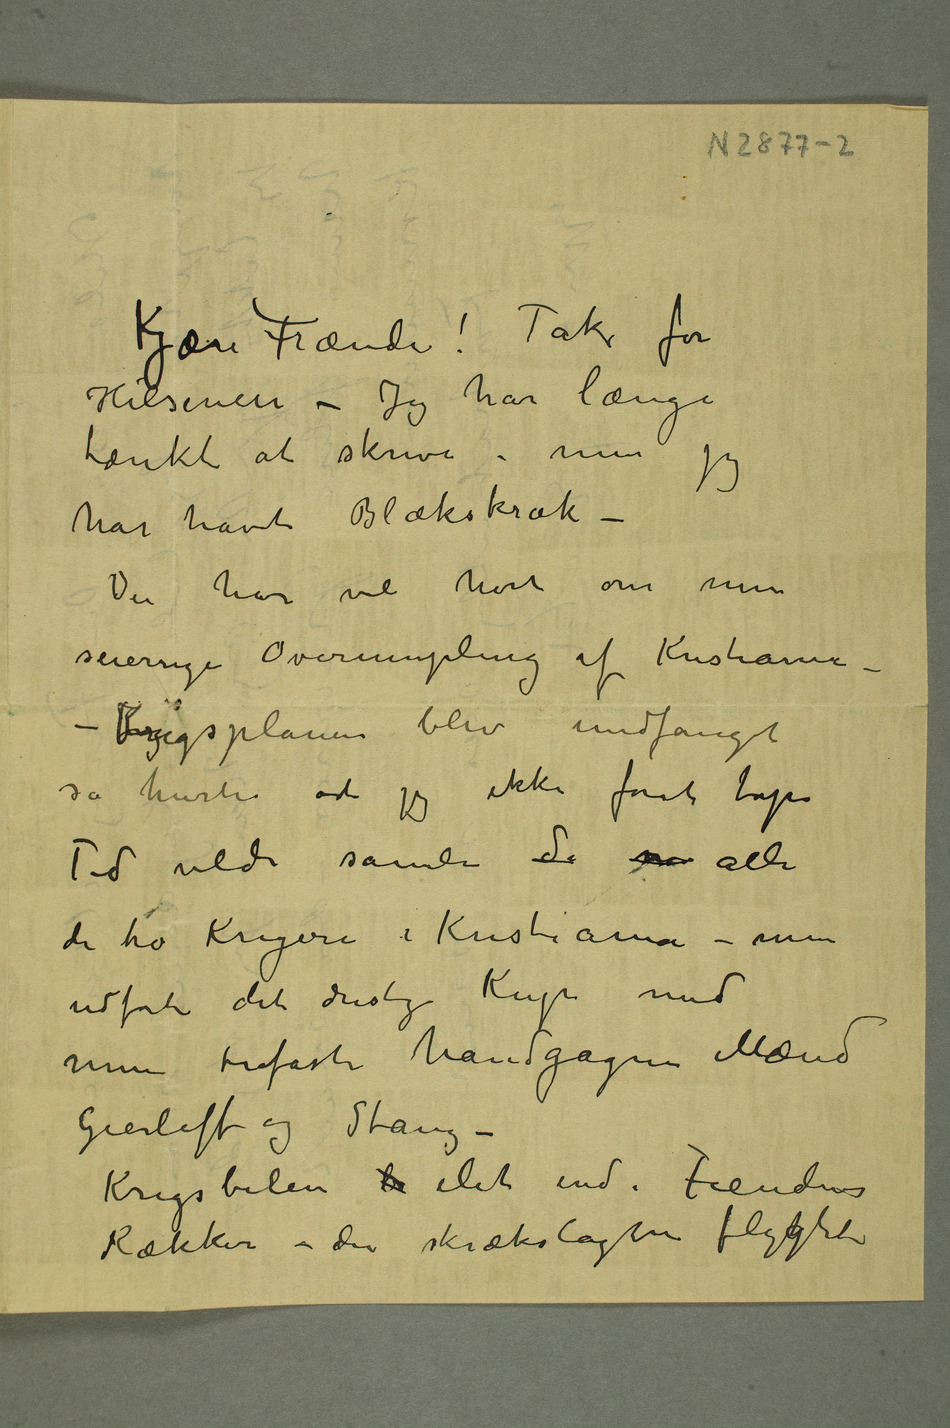 N 2877-2
Kjære Frænde! Tak for
Hilsenen – Jeg har længe
tænkt at skrive – men jeg
har havt Blækskræk –
Du har vel hørt om min
seierrige Overrumpling af Kristiania –
– Krigsplanen blev undfanget
så hurtig at jeg ikke først tape
Tid vilde samle da alle
de to Krigere i Kristiania – men
udførte det dristige Kup med
mine trofaste handgagne Mænd
Gierløff og Stang –
Krigsbilen ilet ind i Fiendens
Rækker – der skrækslagne flygtet